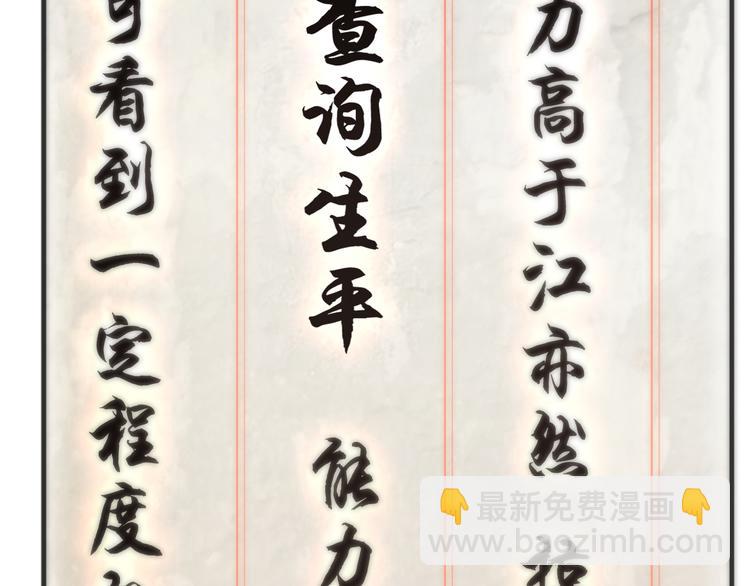 力高于江亦然
查询生平 能力
可看到一定程度
👇最新免费漫画👇
www.baozimh.com